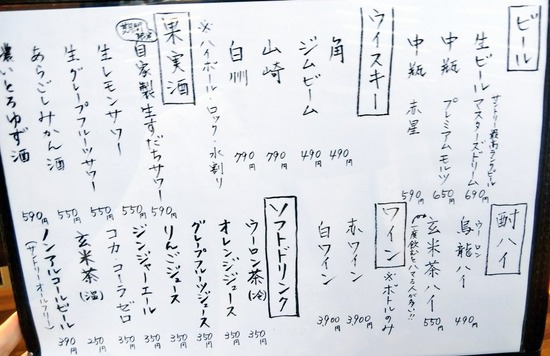 ビール
サントリー最高ランクビール
生ビール マスターズドリーム 690円
中瓶 プレミアムモルツ 650円
中瓶 赤星 590円
ウイスキー
角 490円
ジムビーム 490円
山崎 790円
白州 790円
※ハイボール・ロック・水割り
果実酒
自家製生すだちサワー 590円
生レモンサワー 550円
生グレープフルーツサワー 550円
あらごしみかん酒 550円
濃いとろゆず酒 590円
酎ハイ
ウーロン
烏龍ハイ 490円
玄米茶ハイ 550円
ワイン
※ボトルのみ
赤ワイン 3,900円
白ワイン 3,900円
ソフトドリンク
ウーロン茶(冷) 350円
オレンジジュース 350円
グレープフルーツジュース 350円
りんごジュース 350円
ジンジャーエール 350円
コカ・コーラゼロ 350円
玄米茶(温) 250円
ノンアルコールビール 390円
(サントリーオールフリー)